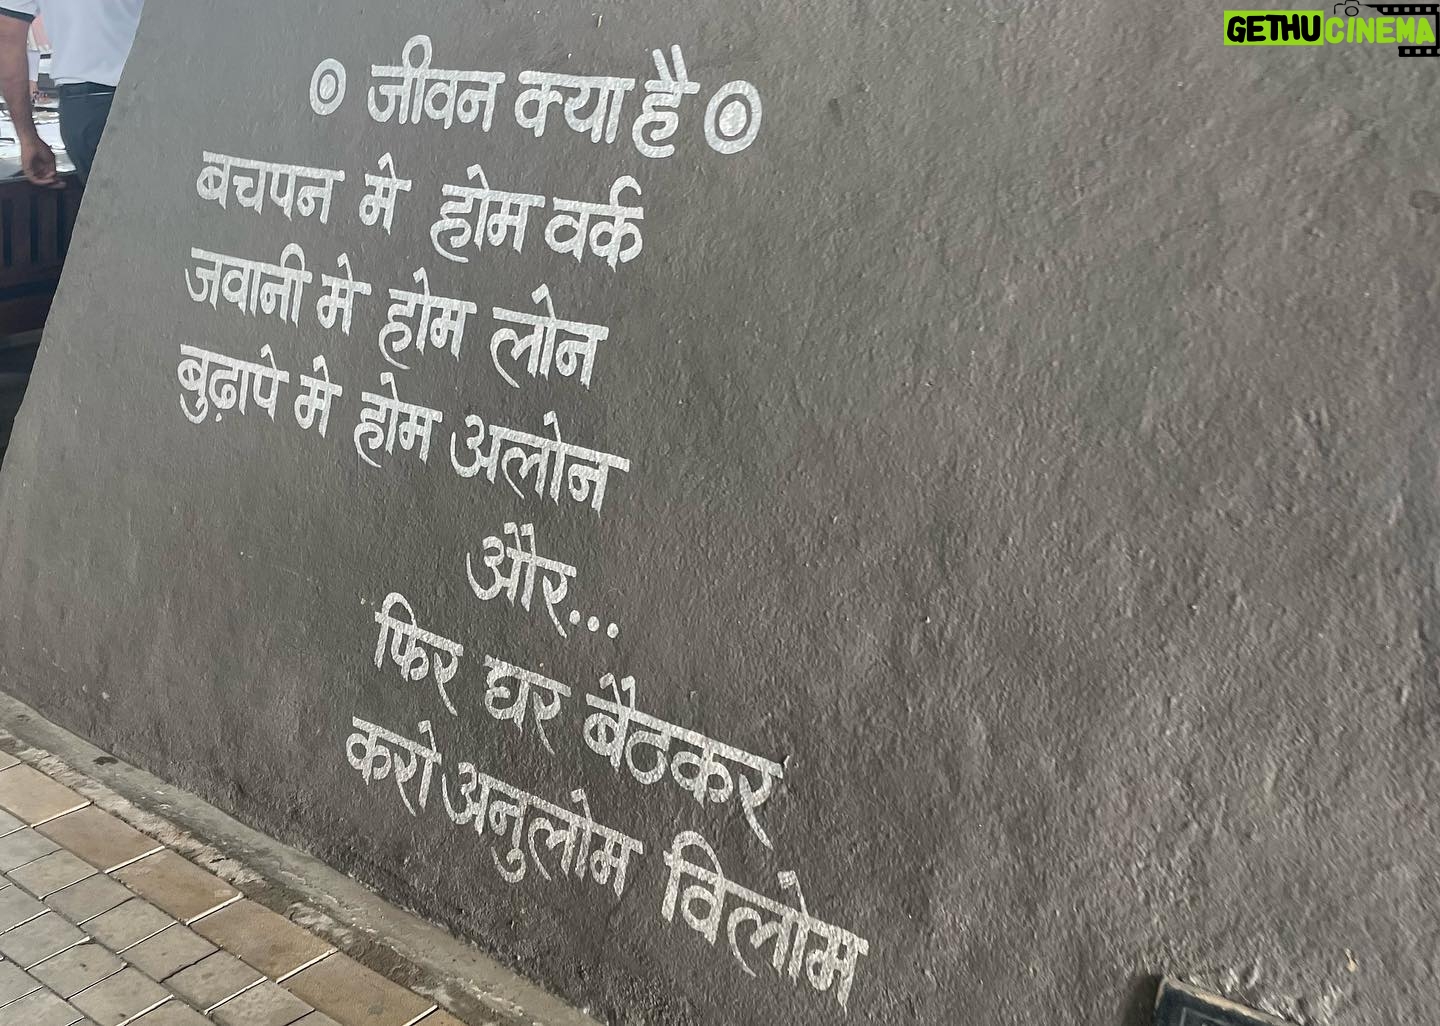 GETHUCINEMA
जीवन क्या है
बचपन मे होम वर्क
जवानी मे होम लोन
बुढ़ापे मे होम अलोन
और...
फिर घर बैठकर
करो अनुलोम विलोम